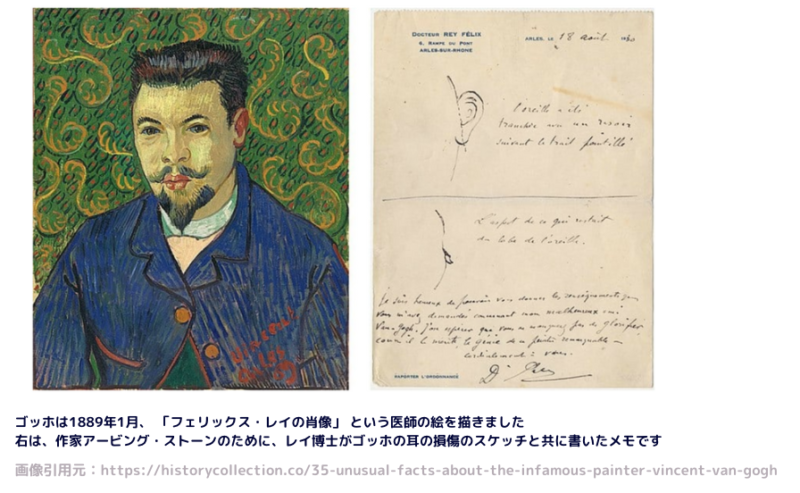 Vincent
Arles 89
DOCTEUR REY FÉLIX
6, RAMPE DU PONT
ARLES-SUR-RHÔNE
ARLES, LE 18 août 1930
L'oreille a été
tranchée avec un rasoir
suivant le trait pointillé
L'aspect de ce qui restait
du lobe de l'oreille.
Je suis heureux de pouvoir vous donner les renseignements que
vous m'avez demandés concernant mon malheureux ami
Van-Gogh. J'espère que vous ne manquerez pas de glorifier
comme il le mérite, le génie de ce peintre remarquable —
cordialement à vous.
Dr Rey
RAPPORTER L'ORDONNANCE
ゴッホは1889年1月、 「フェリックス・レイの肖像」 という医師の絵を描きました
右は、作家アービング・ストーンのために、レイ博士がゴッホの耳の損傷のスケッチと共に書いたメモです
画像引用元：https://historycollection.co/35-unusual-facts-about-the-infamous-painter-vincent-van-gogh